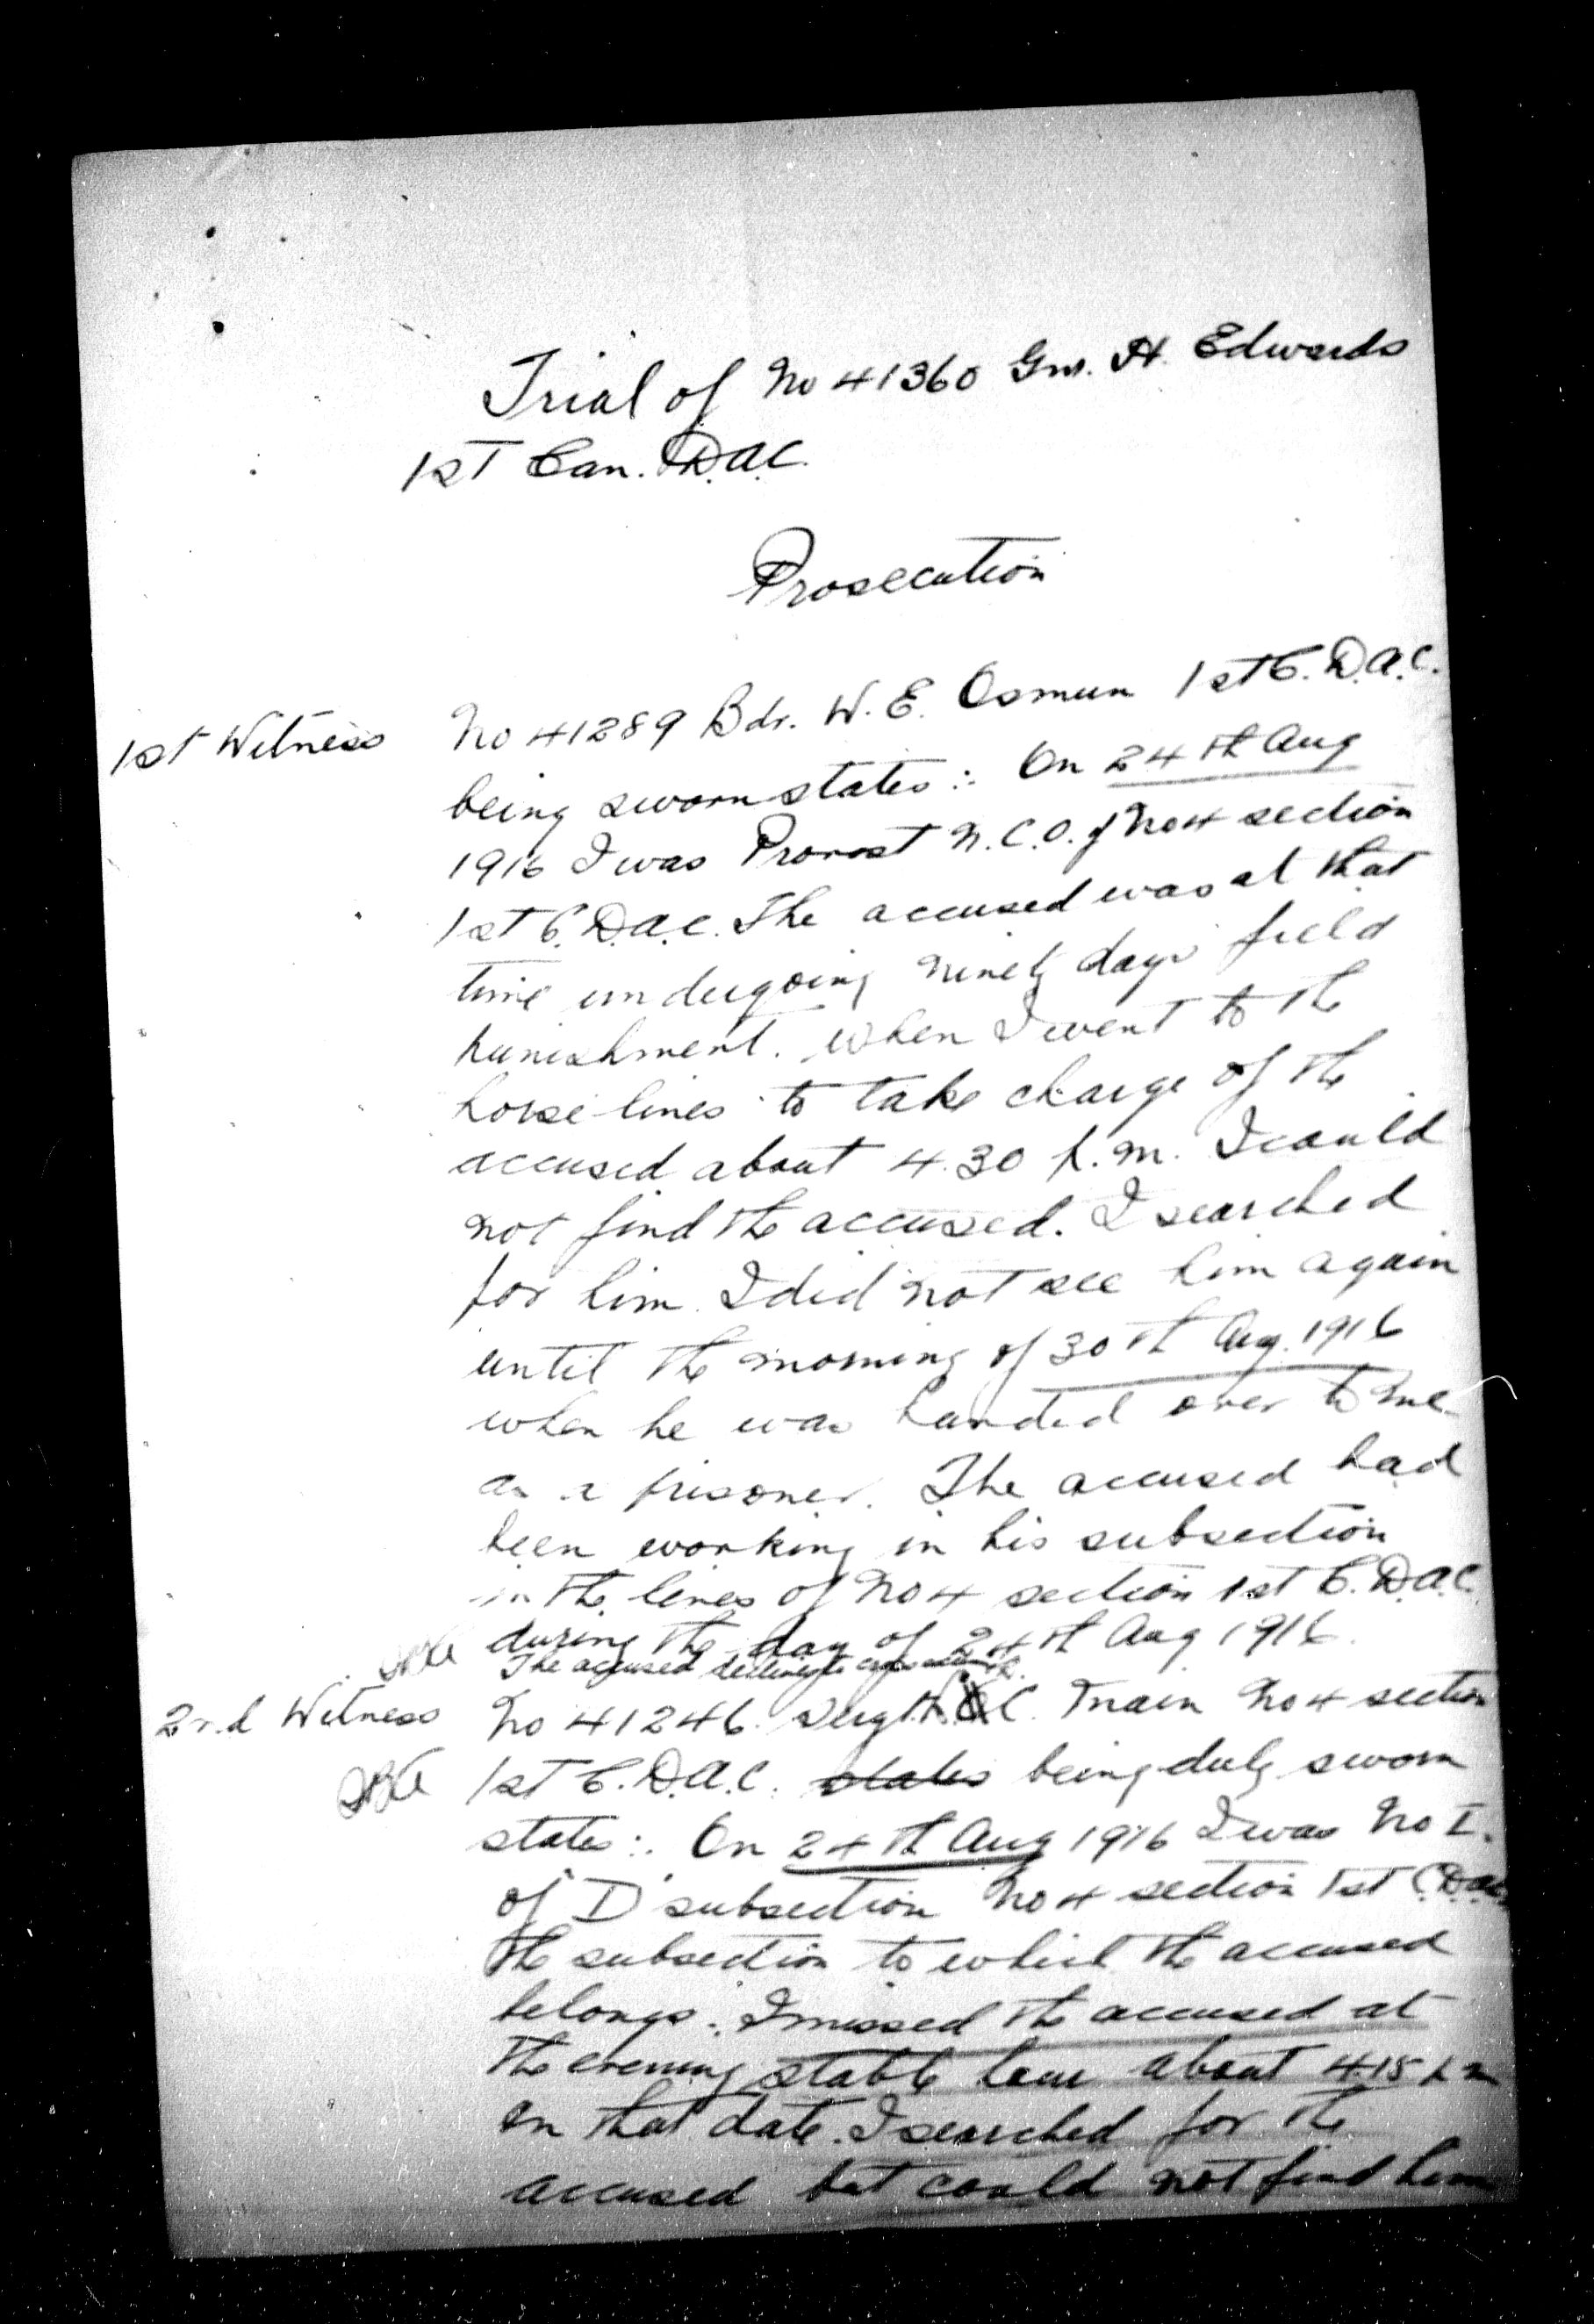 Trial of No 41360 Gnr. H. Edwards
1st Can. D.A.C.
Prosecution
1st Witness No 41289 Bdr. W. E. Osmun 1st C. D.A.C.
being sworn states :. On 24th Aug
1916 I was Provost N.C.O. of No 4 section
1st C. D.A.C. The accused was at that
time undergoing ninety days field
punishment. When I went to the
horse lines to take charge of the
accused about 4.30 p.m. I could
not find the accused. I searched
for him. I did not see him again
until the morning of 30th Aug. 1916
when he was handed over to me
as a prisoner. The accused had
been working in his subsection
in the lines of No 4 section 1st C. D.A.C.
during the day of 24th Aug 1916.
The accused declines to cross
2nd Witness No 41246. Sergt. C. Main No 4 section
1st C. D.A.C. states being duly sworn
states :. On 24th Aug 1916 I was No I.
of D subsection No 4 section 1st C.D.A.C.
the subsection to which the accused
belongs. I missed the accused at
the evening stable hour about 4.15 p m
on that date. I searched for the
accused but could not find him